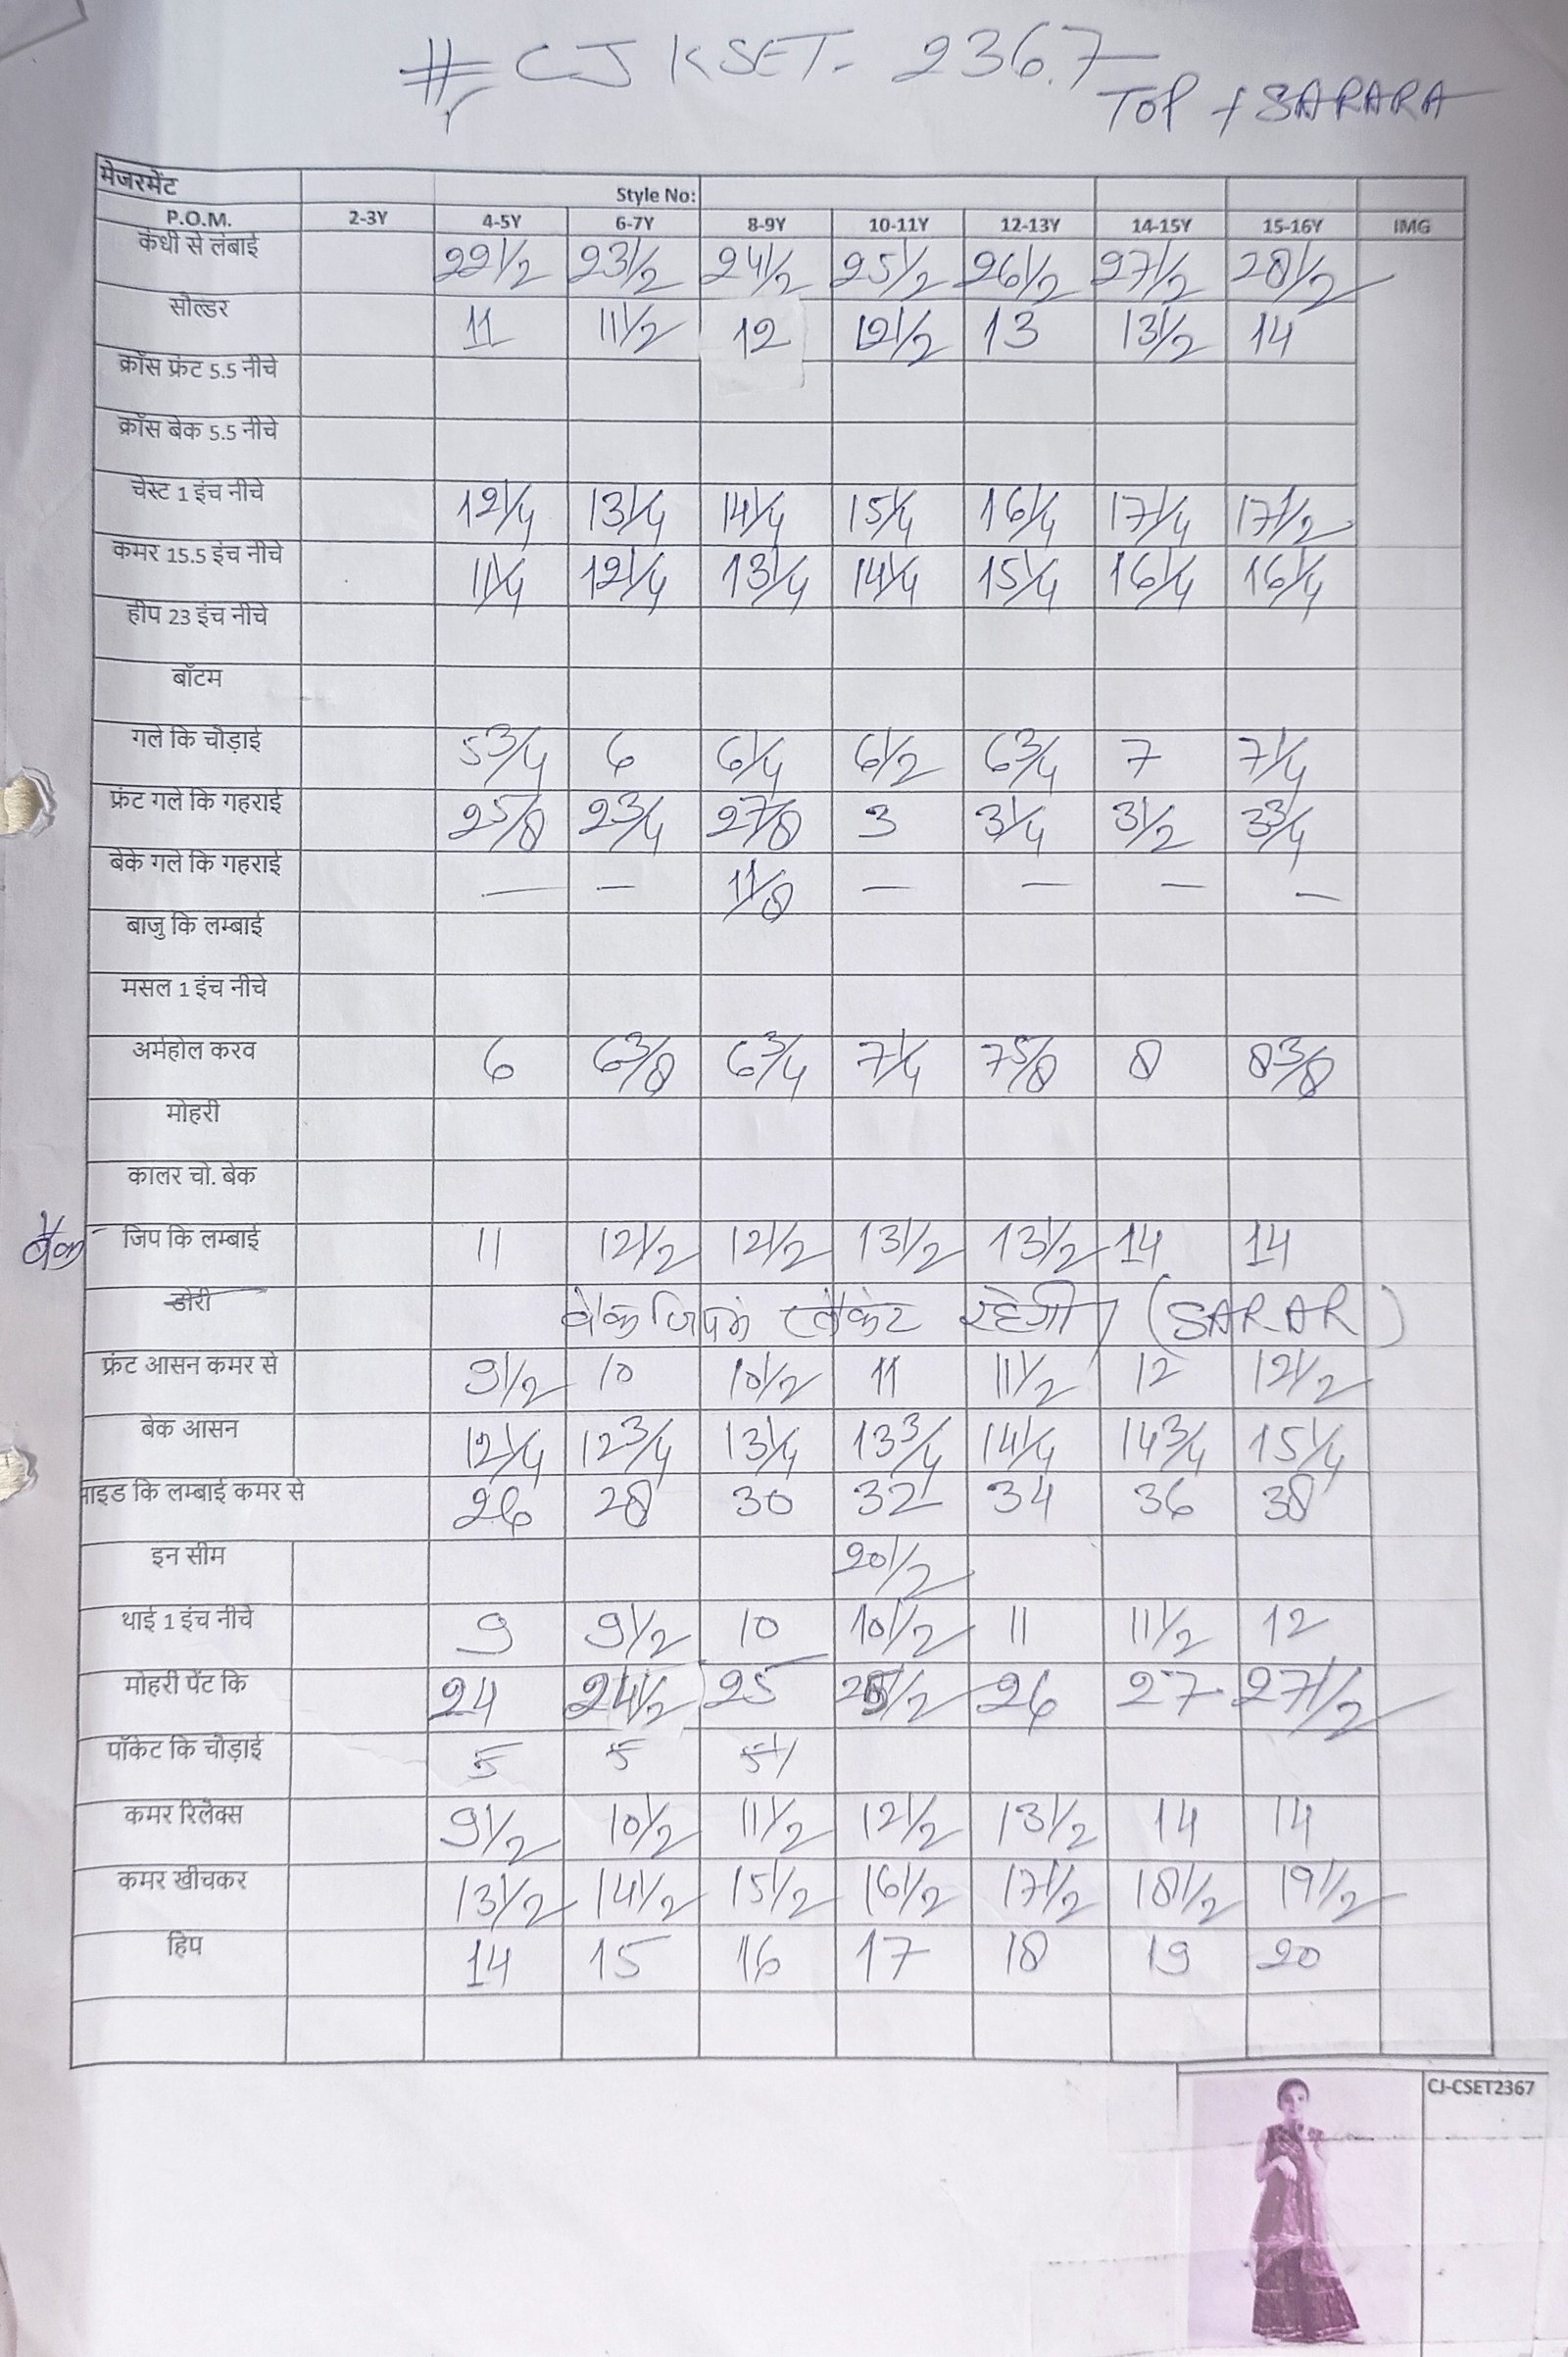 # CJ KSET- 2367
TOP + SARARA
मेजरमेंट Style No:
P.O.M. 2-3Y 4-5Y 6-7Y 8-9Y 10-11Y 12-13Y 14-15Y 15-16Y IMG
कंधी से लंबाई 22 1/2 23 1/2 24 1/2 25 1/2 26 1/2 27 1/2 28 1/2
सोल्डर 11 11 1/2 12 12 1/2 13 13 1/2 14
क्रॉस फ्रंट 5.5 नीचे
क्रॉस बेक 5.5 नीचे
चेस्ट 1 इंच नीचे 12 1/4 13 1/4 14 1/4 15 1/4 16 1/4 17 1/4 17 1/2
कमर 15.5 इंच नीचे 11 1/4 12 1/4 13 1/4 14 1/4 15 1/4 16 1/4 16 1/4
हीप 23 इंच नीचे
बॉटम
गले कि चौड़ाई 5 3/4 6 6 1/4 6 1/2 6 3/4 7 7 1/4
फ्रंट गले कि गहराई 2 5/8 2 3/4 2 7/8 3 3 1/4 3 1/2 3 3/4
बेके गले कि गहराई — — 1 1/8 — — — —
बाजु कि लम्बाई
मसल 1 इंच नीचे
अर्महोल करव 6 6 3/8 6 3/4 7 1/4 7 5/8 8 8 3/8
मोहरी
कालर चो. बेक
बैक जिप कि लम्बाई 11 12 1/2 12 1/2 13 1/2 13 1/2 14 14
डोरी बैक जिपमे रहेगी (SARAR)
फ्रंट आसन कमर से 9 1/2 10 10 1/2 11 11 1/2 12 12 1/2
बेक आसन 12 1/4 12 3/4 13 1/4 13 3/4 14 1/4 14 3/4 15 1/4
साइड कि लम्बाई कमर से 26 28 30 32 34 36 38
इन सीम 20 1/2
थाई 1 इंच नीचे 9 9 1/2 10 10 1/2 11 11 1/2 12
मोहरी पेंट कि 24 24 1/2 25 25 1/2 26 27 27 1/2
पॉकेट कि चौड़ाई 5 5
कमर रिलेक्स 9 1/2 10 1/2 11 1/2 12 1/2 13 1/2 14 14
कमर खीचकर 13 1/2 14 1/2 15 1/2 16 1/2 17 1/2 18 1/2 19 1/2
हिप 14 15 16 17 18 19 20
CJ-CSET2367